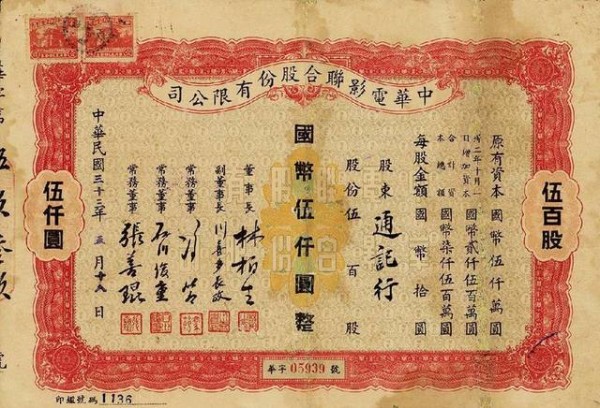 中華電影聯合股份有限公司
伍百股
原有資本 國幣伍仟萬圓
卅二年十月一日增加資本 國幣貳仟伍百萬圓
合計資本總額 國幣柒仟伍百萬圓
每股金額 國幣拾圓
股東 通記行
股份伍百股
國幣伍仟圓整
董事長 林柏生
副董事長 川喜多長政
常務董事 馮節
常務董事 石川俊重
常務董事 張善琨
中華民國三十三年五月十六日
伍仟圓
華字 05939 號
印編號碼 1136